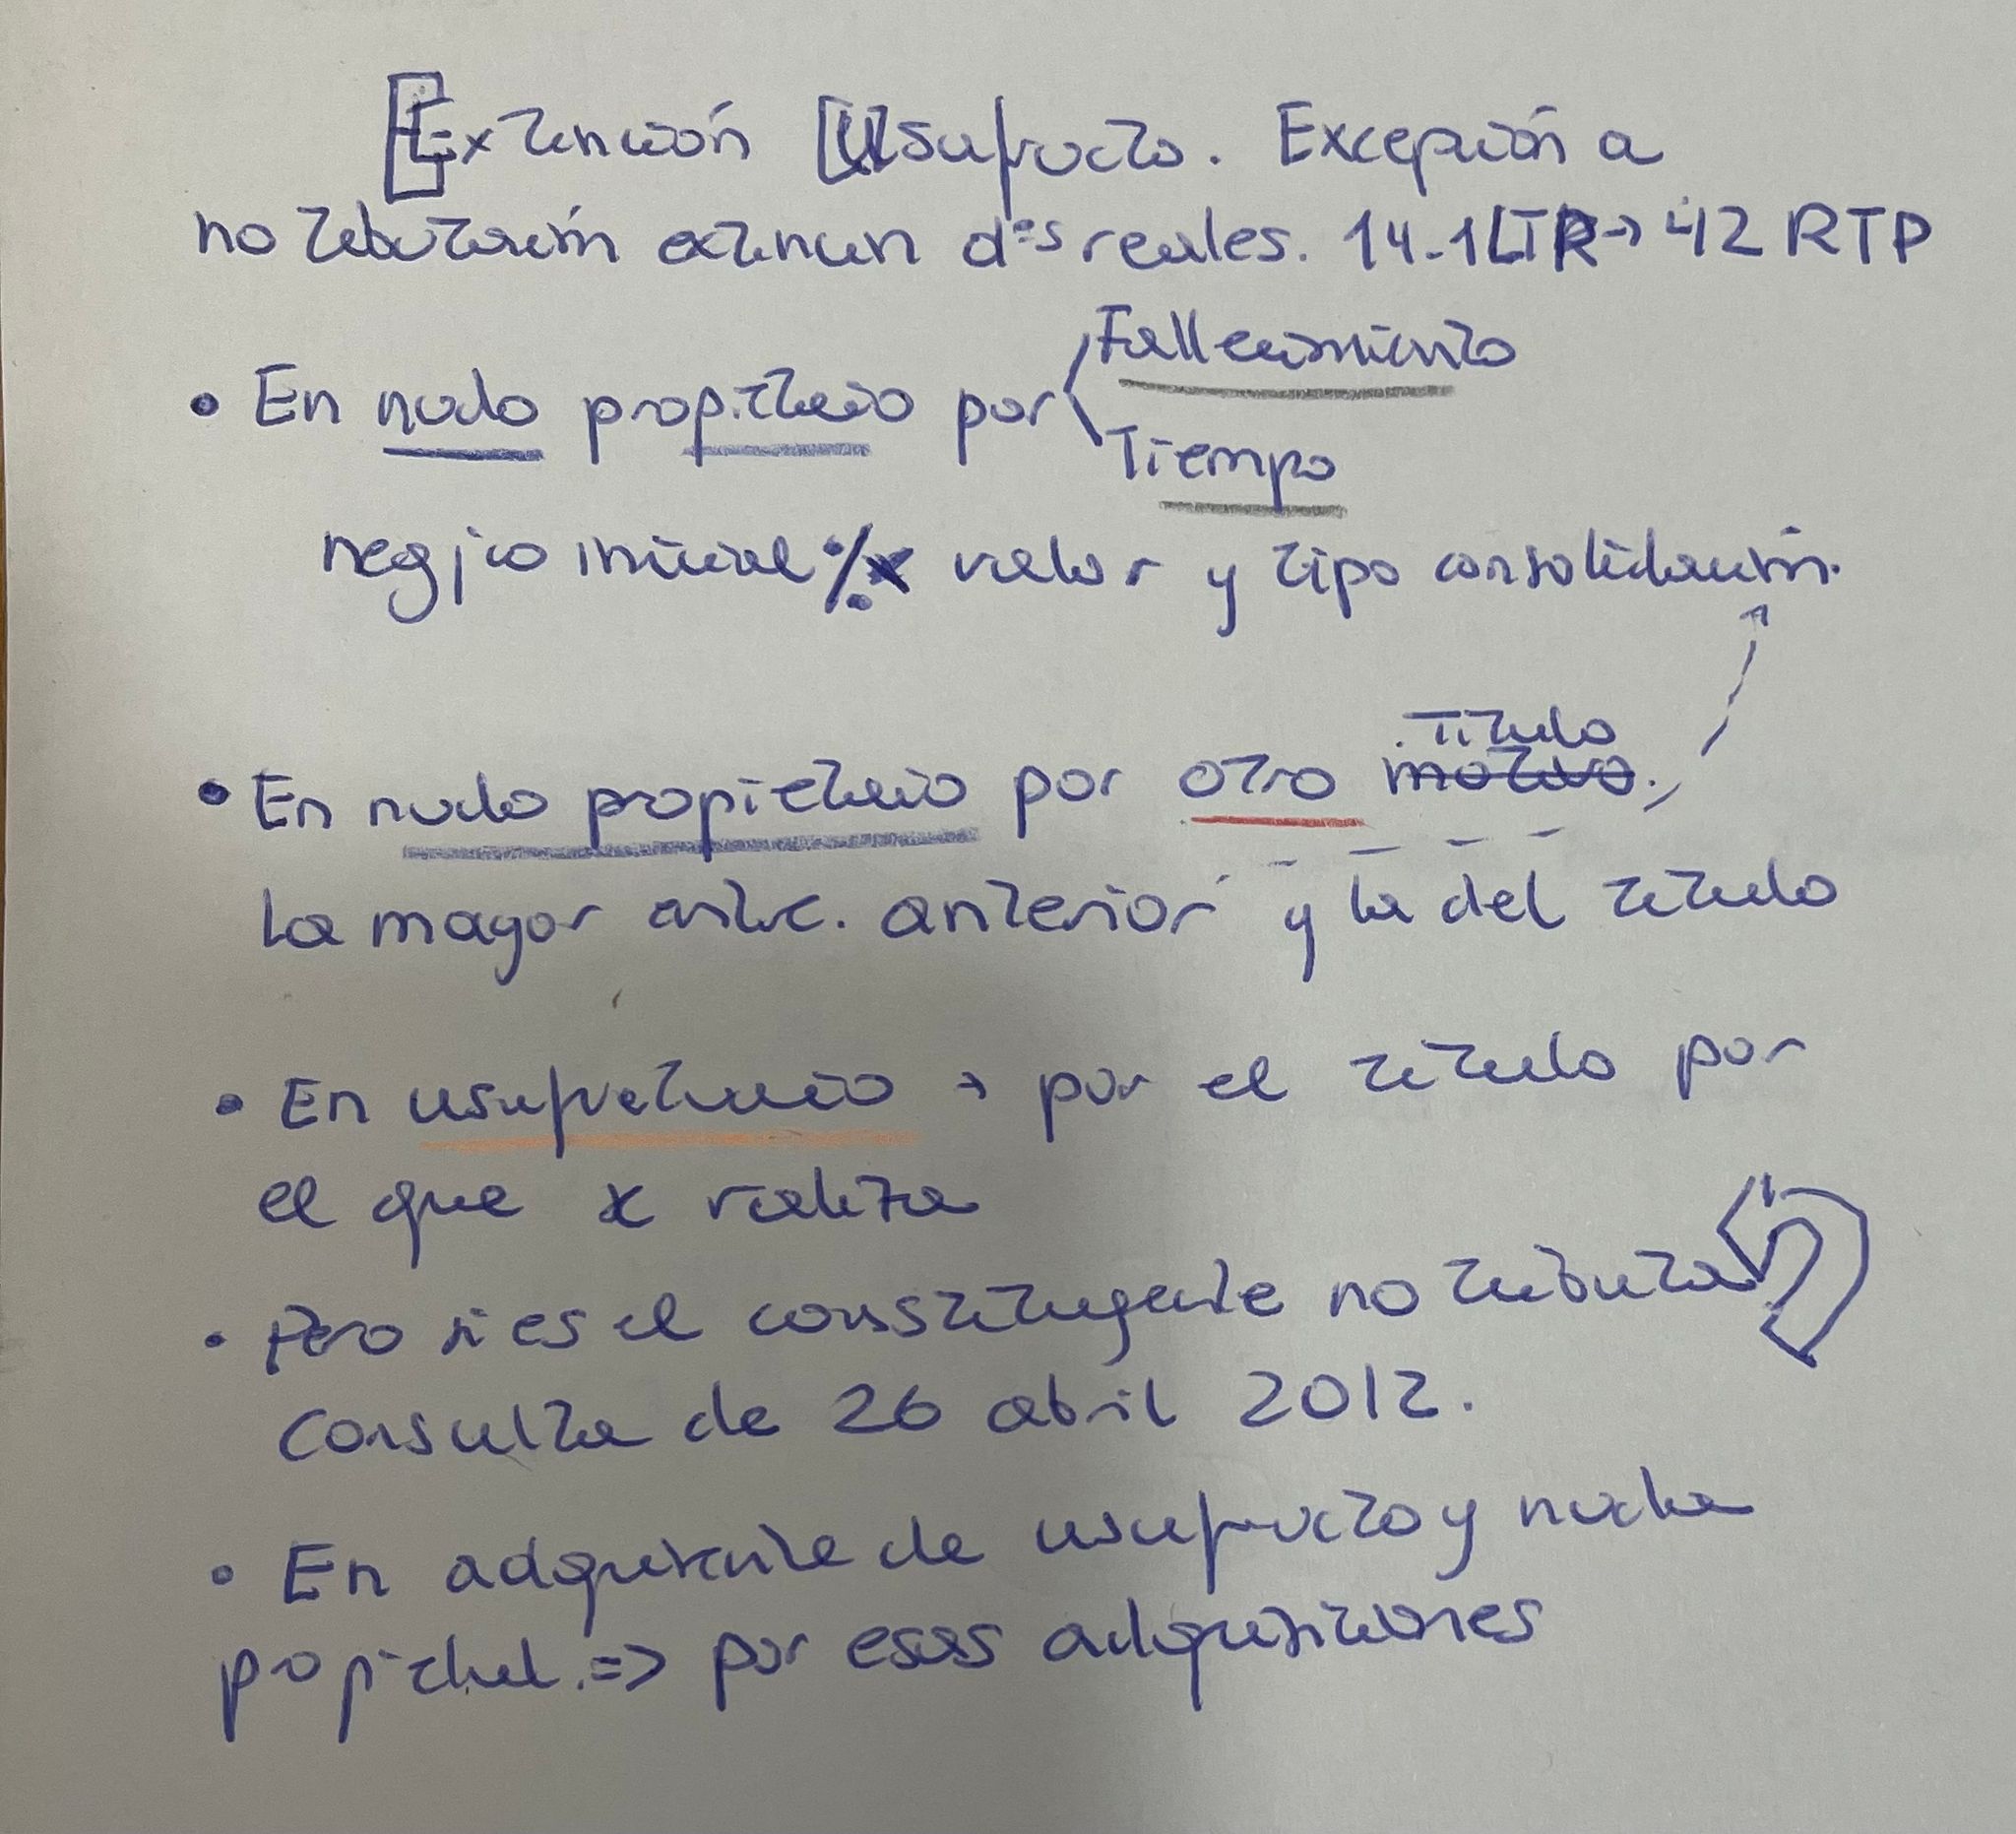 Extinción Usufructo. Excepción a
no tributación extinción dºs reales. 14.1 LTP → 42 RTP
• En nudo propietario por Fallecimiento
Tiempo
negjco inicial % valor y tipo consolidación.
Título
• En nudo propietario por otro motivo.
La mayor entre. anterior y la del título
• En usufructuario → por el título por
el que x realiza
• Pero si es el constituyente no tributa
Consulta de 26 abril 2012.
• En adquirente de usufructo y nuda
propiedad. => por esas adquisiciones